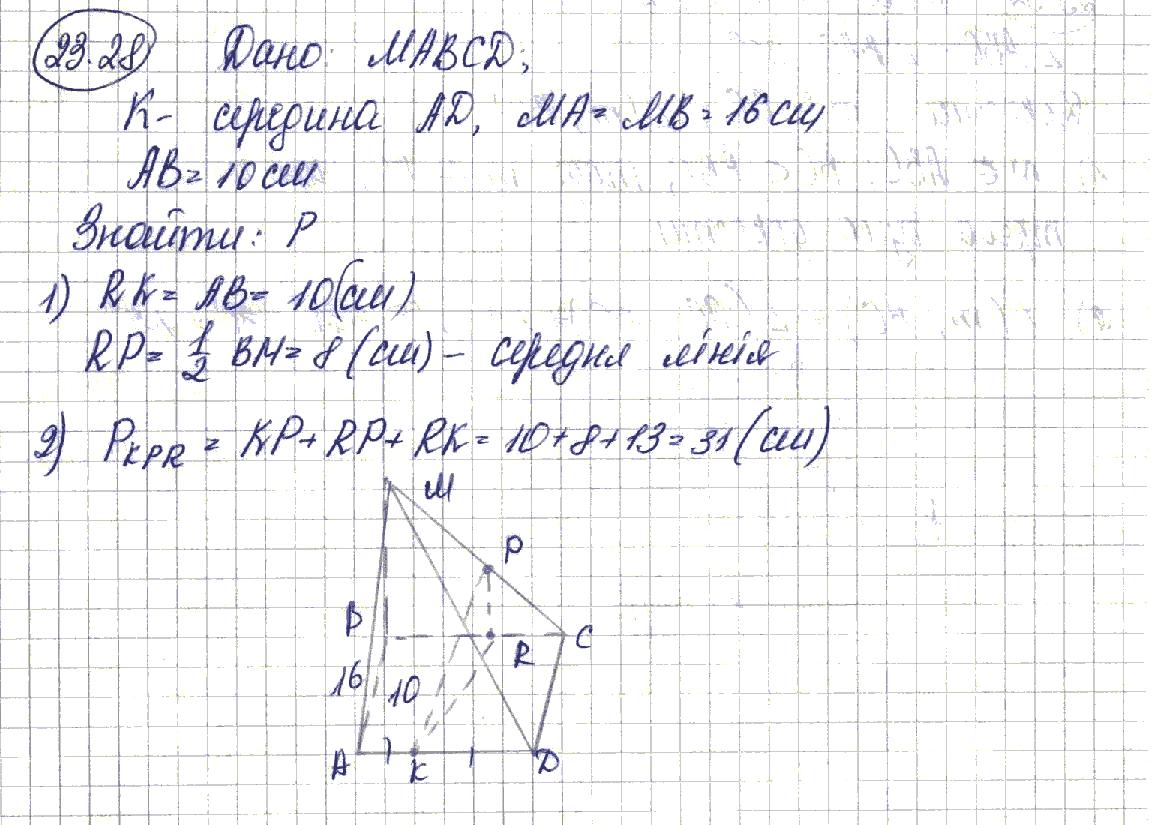 23.28 Дано: MABCD;
K- середина AD, MA = MB = 16 см
AB = 10 см
Знайти: P
1) RK = AB = 10 (см)
RP = 1/2 BM = 8 (см) - середня лінія
2) P_KPR = KP + RP + RK = 10 + 8 + 13 = 31 (см)
M
P
B
C
R
16
10
A
K
D